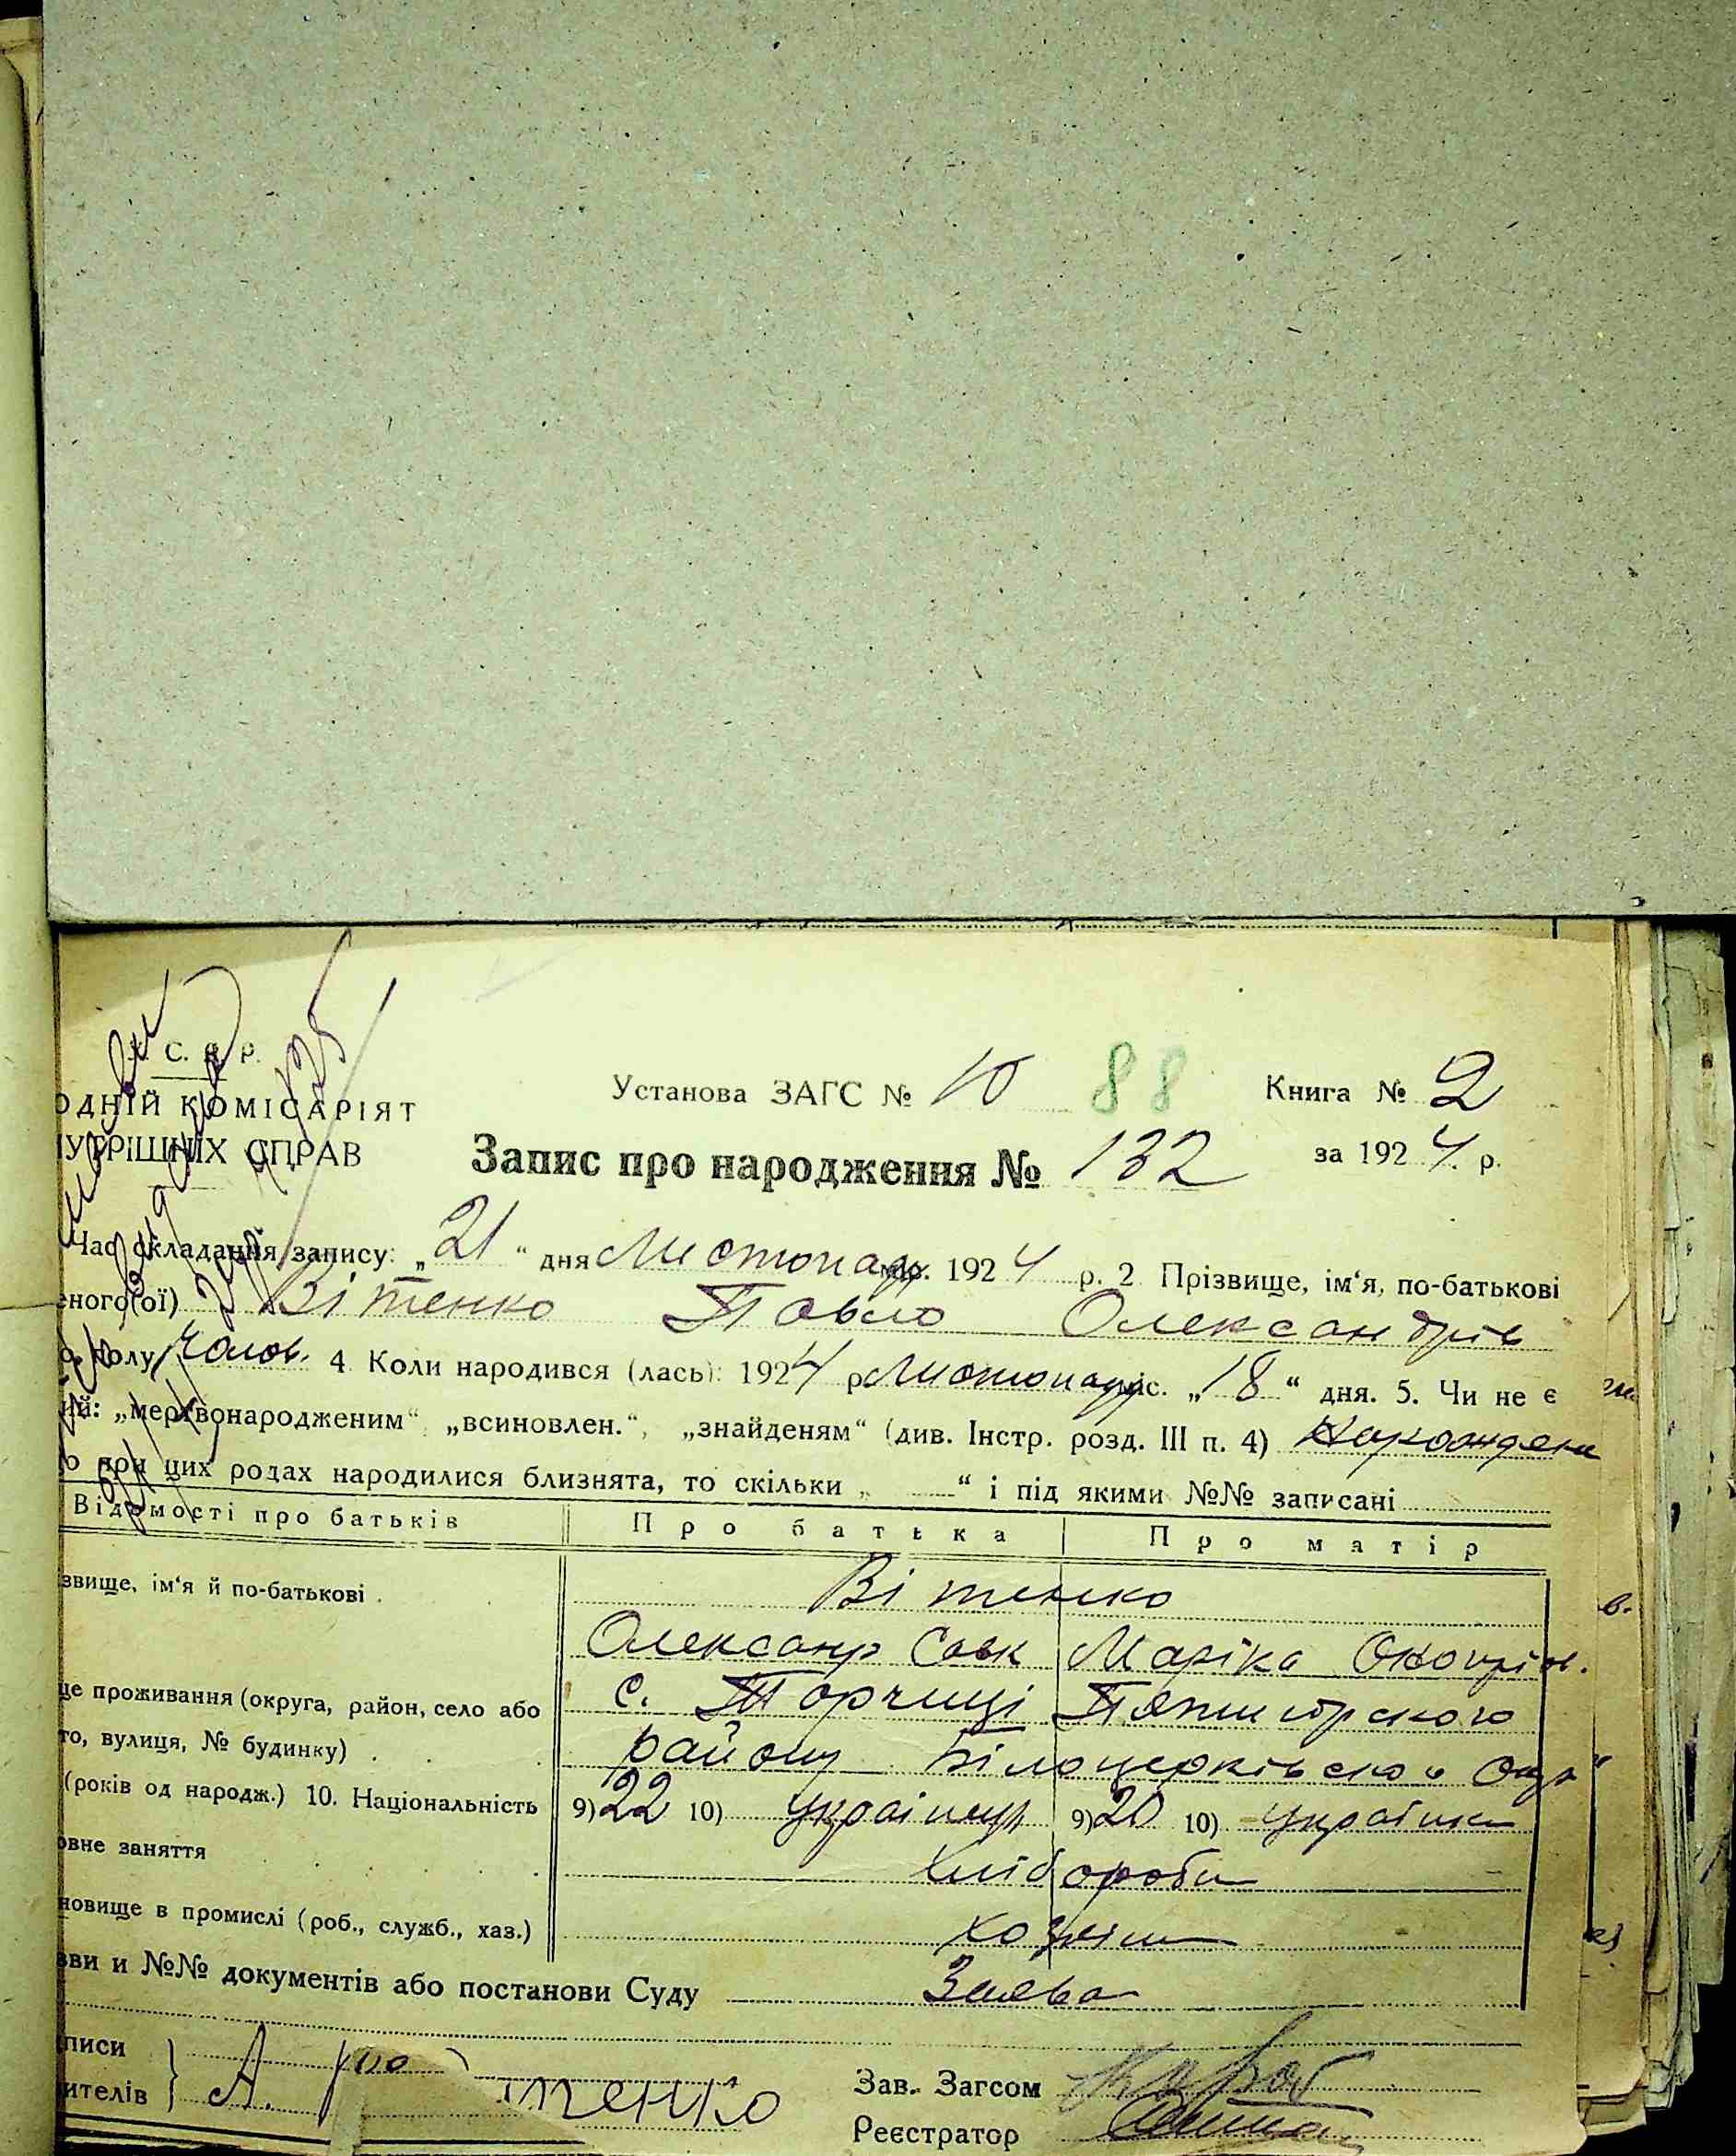 С. Р. Р.
ОДНІЙ КОМІСАРІЯТ
УТРІШНІХ СПРАВ
Установа ЗАГС № 10 88 Книга № 2
Запис про народження № 132 за 1924 р.
Час складання запису: „21“ дня Листопад 1924 р. 2 Прізвище, ім‘я, по-батькові
еного(ої) Вітенко Павло Олександрів
полу чолов. 4 Коли народився (лась): 1924 р. Листопад міс. „18“ дня. 5. Чи не є
ий: „мертвонародженим“, „всиновлен.“, „знайденям“ (див. Інстр. розд. III п. 4)
о при цих родах народилися близнята, то скільки „ “ і під якими №№ записані
Відомості про батьків Про батька Про матір
звище, ім‘я й по-батькові . Вітенко
Олександр Савк Маріка
це проживання (округа, район, село або с. Торчиці Пятигорского
то, вулиця, № будинку) . району Білоцерківсько Окр
(років од народж.) 10. Національність 9) 22 10) Українец 9) 20 10) Українка
овне заняття Хлібороби
новище в промислі (роб., служб., хаз.) хозяїн
зви и №№ документів або постанови Суду Заява
писи
ителів } А. тенко
Зав. Загсом
Реєстратор